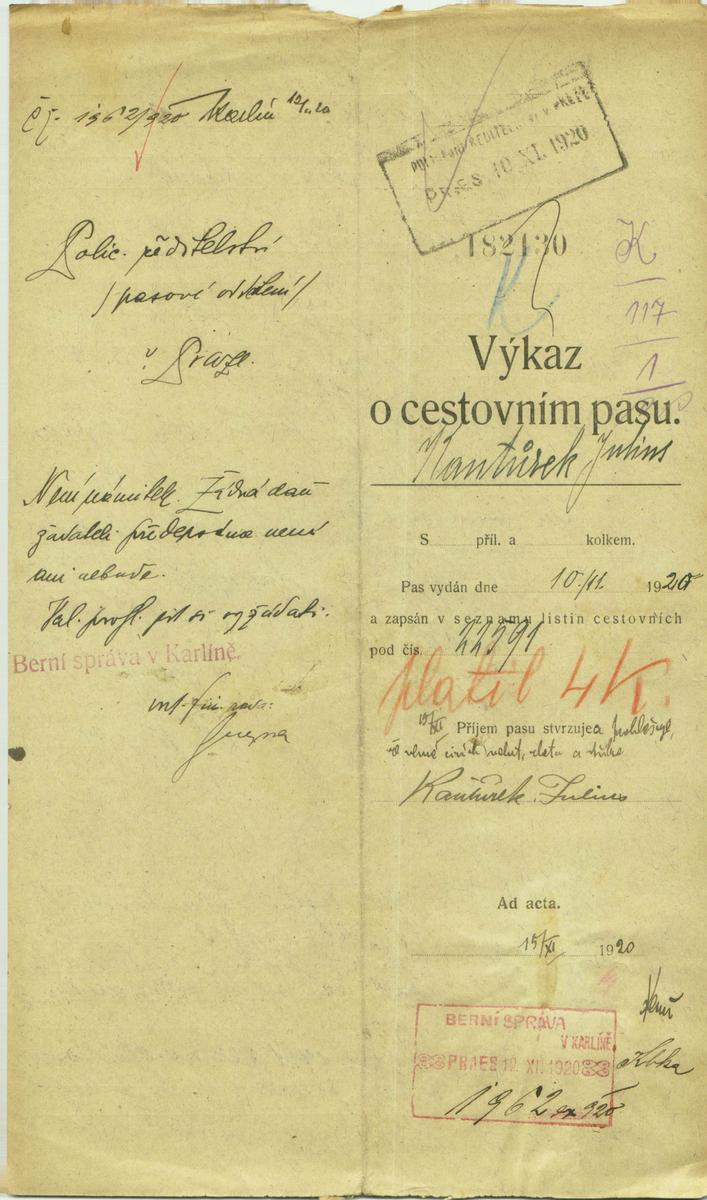 Čj. 1962/920 Karlín 12/11.20
Polic. ředitelství
/pasové oddělení/
v Praze.
Není námitek. Žádná daň
žadateli předepsána není
ani nebude.
Berní správa v Karlíně.
POLICEJNÍ ŘEDITELSTVÍ V PRAZE
PRÆS 10 XI. 1920
182130
K
117
1
Výkaz
o cestovním pasu.
Kantůrek Julius
S příl. a kolkem.
Pas vydán dne 10./11. 1920
a zapsán v seznamu listin cestovních
pod čís. 22591
platil 4K.
15/XI Příjem pasu stvrzuje a prohlašuje,
Kantůrek Julius
Ad acta.
15/XI 1920
BERNÍ SPRÁVA
V KARLÍNĚ
PRAES 12. XI. 1920
1962 ex 920